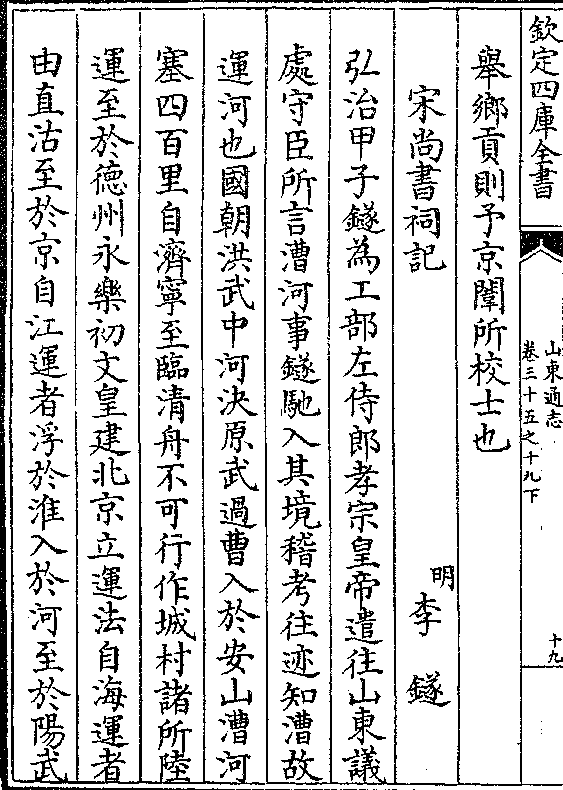 欽定四庫全書
山東通志
卷三十五之十九下
十九
舉鄉貢則予京闈所校士也
宋尚書祠記
明李鐩
弘治甲子鐩為工部左侍郎孝宗皇帝遣往山東議
處守臣所言漕河事鐩馳入其境稽考往迹知漕故
運河也國朝洪武中河決原武過曹入於安山漕河
塞四百里自濟寧至臨清舟不可行作城村諸所陸
運至於德州永樂初文皇建北京立運法自海運者
由直沽至於京自江運者浮於淮入於河至於陽武